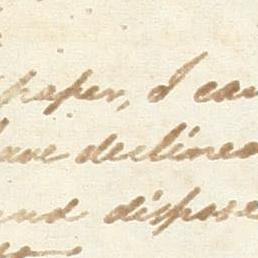 paper, I can
have declined
and dispose